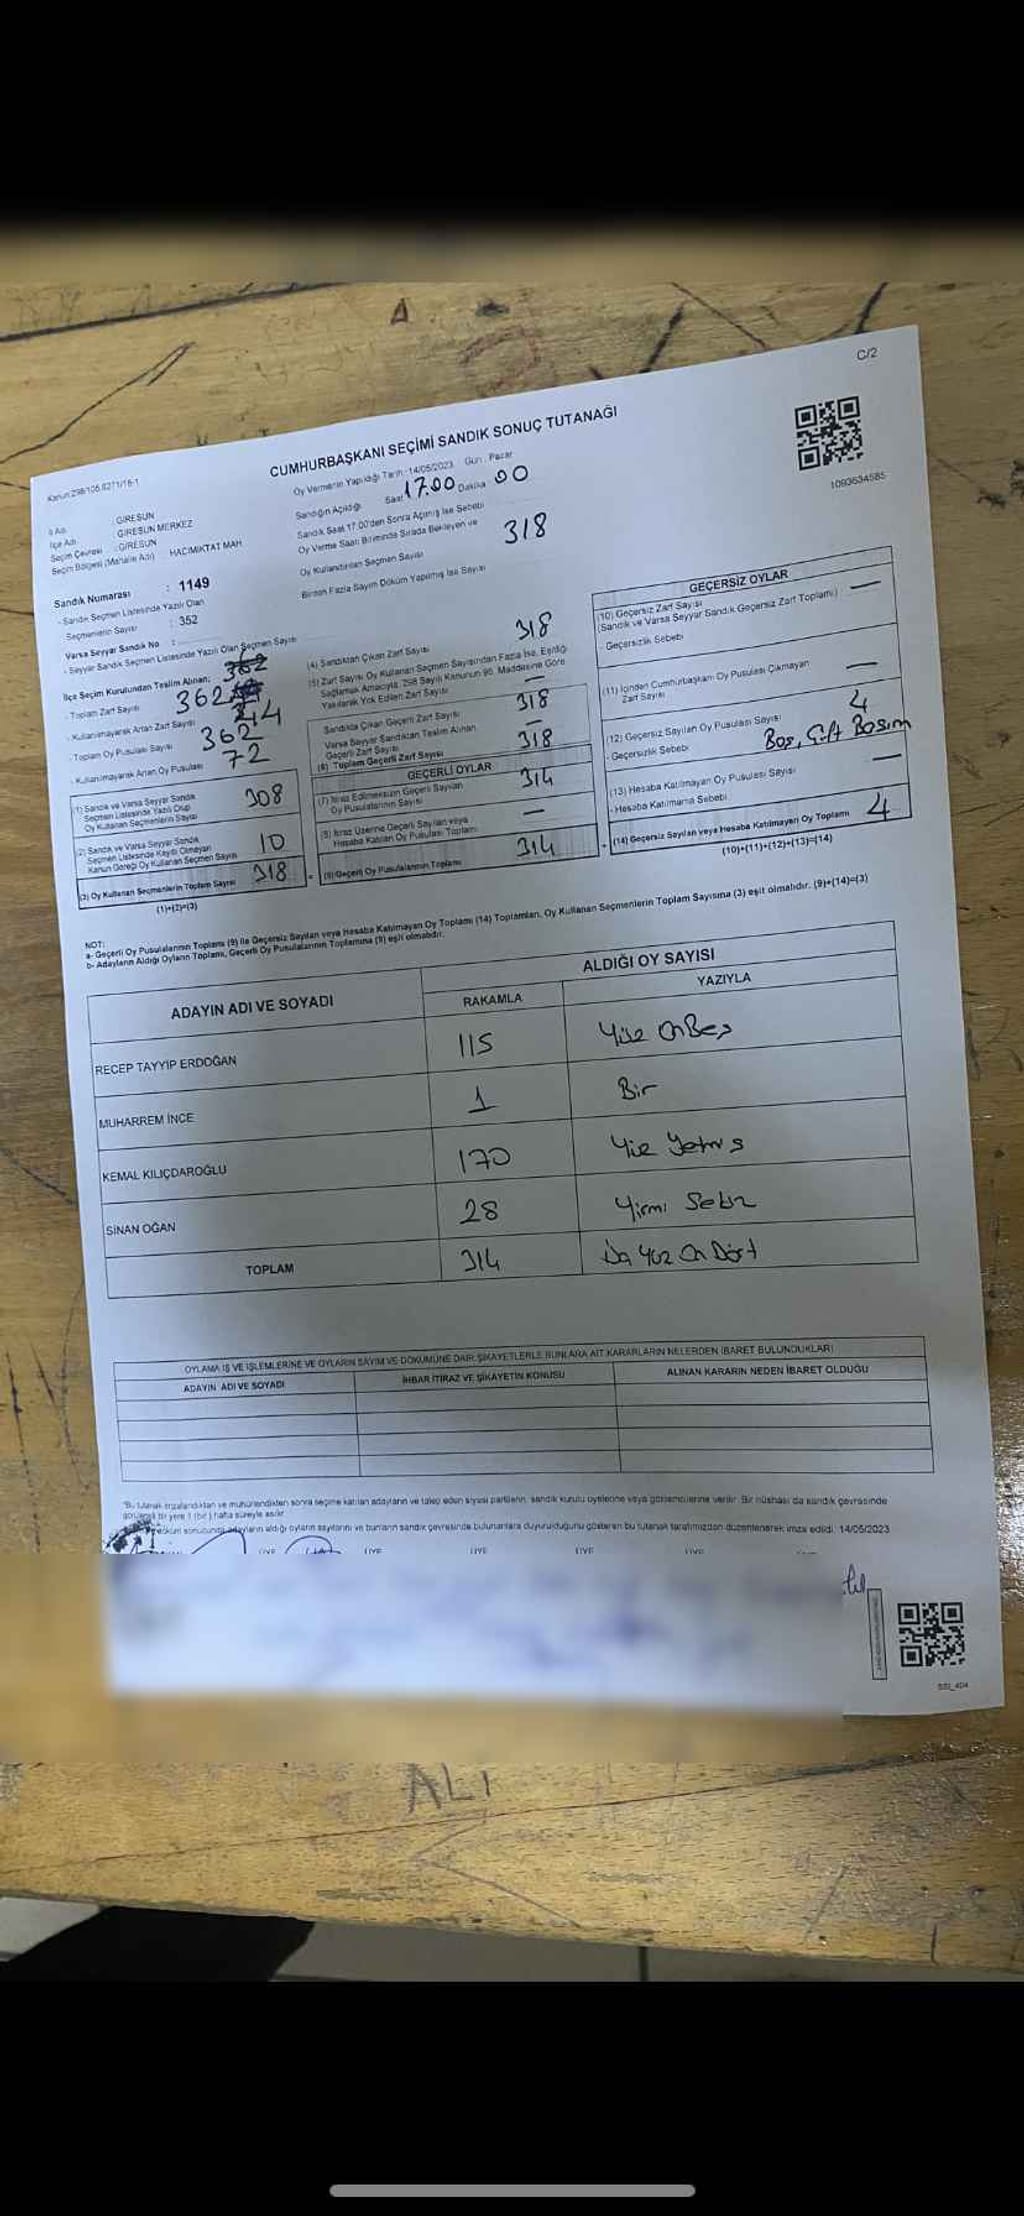 C/2
CUMHURBAŞKANI SEÇİMİ SANDIK SONUÇ TUTANAĞI
1093634585
Oy Vermenin Yapıldığı Tarih :14/05/2023 Gün : Pazar
Sandığın Açıldığı Saat 17.00 Dakika 00
Sandık Saat 17.00'den Sonra Açılmış İse Sebebi
Oy Verme Saati Bitiminde Sırada Bekleyen ve
Oy Kullandırılan Seçmen Sayısı 318
Birden Fazla Sayım Döküm Yapılmış İse Sayısı
İl Adı : GİRESUN
İlçe Adı : GİRESUN MERKEZ
Seçim Çevresi : GİRESUN
Seçim Bölgesi (Mahalle Adı) HACIMİKTAT MAH
Sandık Numarası : 1149
- Sandık Seçmen Listesinde Yazılı Olan
Seçmenlerin Sayısı : 352
Varsa Seyyar Sandık No :
- Seyyar Sandık Seçmen Listesinde Yazılı Olan Seçmen Sayısı
İlçe Seçim Kurulundan Teslim Alınan;
- Toplam Zarf Sayısı 362
- Kullanılmayarak Artan Zarf Sayısı
- Toplam Oy Pusulası Sayısı 362
- Kullanılmayarak Artan Oy Pusulası 72
(1) Sandık ve Varsa Seyyar Sandık
Seçmen Listesinde Yazılı Olup
Oy Kullanan Seçmenlerin Sayısı 308
(2) Sandık ve Varsa Seyyar Sandık
Seçmen Listesinde Kayıtlı Olmayan
Kanun Gereği Oy Kullanan Seçmen Sayısı 10
(3) Oy Kullanan Seçmenlerin Toplam Sayısı 318
(1)+(2)=(3)
(4) Sandıktan Çıkan Zarf Sayısı 318
(5) Zarf Sayısı Oy Kullanan Seçmen Sayısından Fazla İse, Eşitliği
Sağlamak Amacıyla, 298 Sayılı Kanunun 98. Maddesine Göre
Yakılarak Yok Edilen Zarf Sayısı —
Sandıkta Çıkan Geçerli Zarf Sayısı 318
Varsa Seyyar Sandıktan Teslim Alınan
Geçerli Zarf Sayısı —
(6) Toplam Geçerli Zarf Sayısı 318
GEÇERLİ OYLAR
(7) İtiraz Edilmeksizin Geçerli Sayılan
Oy Pusulalarının Sayısı 314
(8) İtiraz Üzerine Geçerli Sayılan veya
Hesaba Katılan Oy Pusulası Toplamı —
(9) Geçerli Oy Pusulalarının Toplamı 314
GEÇERSİZ OYLAR
(10) Geçersiz Zarf Sayısı —
(Sandık ve Varsa Seyyar Sandık Geçersiz Zarf Toplamı)
- Geçersizlik Sebebi
(11) İçinden Cumhurbaşkanı Oy Pusulası Çıkmayan
Zarf Sayısı —
(12) Geçersiz Sayılan Oy Pusulası Sayısı 4
- Geçersizlik Sebebi Boş, Çift Basım
(13) Hesaba Katılmayan Oy Pusulası Sayısı —
- Hesaba Katılmama Sebebi
(14) Geçersiz Sayılan veya Hesaba Katılmayan Oy Toplamı 4
(10)+(11)+(12)+(13)=(14)
NOT:
a- Geçerli Oy Pusulalarının Toplamı (9) ile Geçersiz Sayılan veya Hesaba Katılmayan Oy Toplamı (14) Toplamları, Oy Kullanan Seçmenlerin Toplam Sayısına (3) eşit olmalıdır. (9)+(14)=(3)
b- Adayların Aldığı Oyların Toplamı, Geçerli Oy Pusulalarının Toplamına (9) eşit olmalıdır.
ADAYIN ADI VE SOYADI ALDIĞI OY SAYISI
RAKAMLA YAZIYLA
RECEP TAYYİP ERDOĞAN 115 Yüz OnBeş
MUHARREM İNCE 1 Bir
KEMAL KILIÇDAROĞLU 170 Yüz Yetmiş
SİNAN OĞAN 28 Yirmi Sekiz
TOPLAM 314 Üç Yüz On Dört
OYLAMA İŞ VE İŞLEMLERİNE VE OYLARIN SAYIM VE DÖKÜMÜNE DAİR ŞİKAYETLERLE BUNLARA AİT KARARLARIN NELERDEN İBARET BULUNDUKLARI
ADAYIN ADI VE SOYADI İHBAR İTİRAZ VE ŞİKAYETİN KONUSU ALINAN KARARIN NEDEN İBARET OLDUĞU
*Bu tutanak imzalandıktan ve mühürlendikten sonra seçime katılan adayların ve talep eden siyasi partilerin, sandık kurulu üyelerine veya gözlemcilerine verilir. Bir nüshası da sandık çevresinde
görülecek bir yere 1 (bir) hafta süreyle asılır.
döküm sonucunda adayların aldığı oyların sayılarını ve bunların sandık çevresinde bulunanlara duyurulduğunu gösteren bu tutanak tarafımızdan düzenlenerek imza edildi. 14/05/2023
ÜYE ÜYE ÜYE ÜYE ÜYE
SSI_404
ALİ